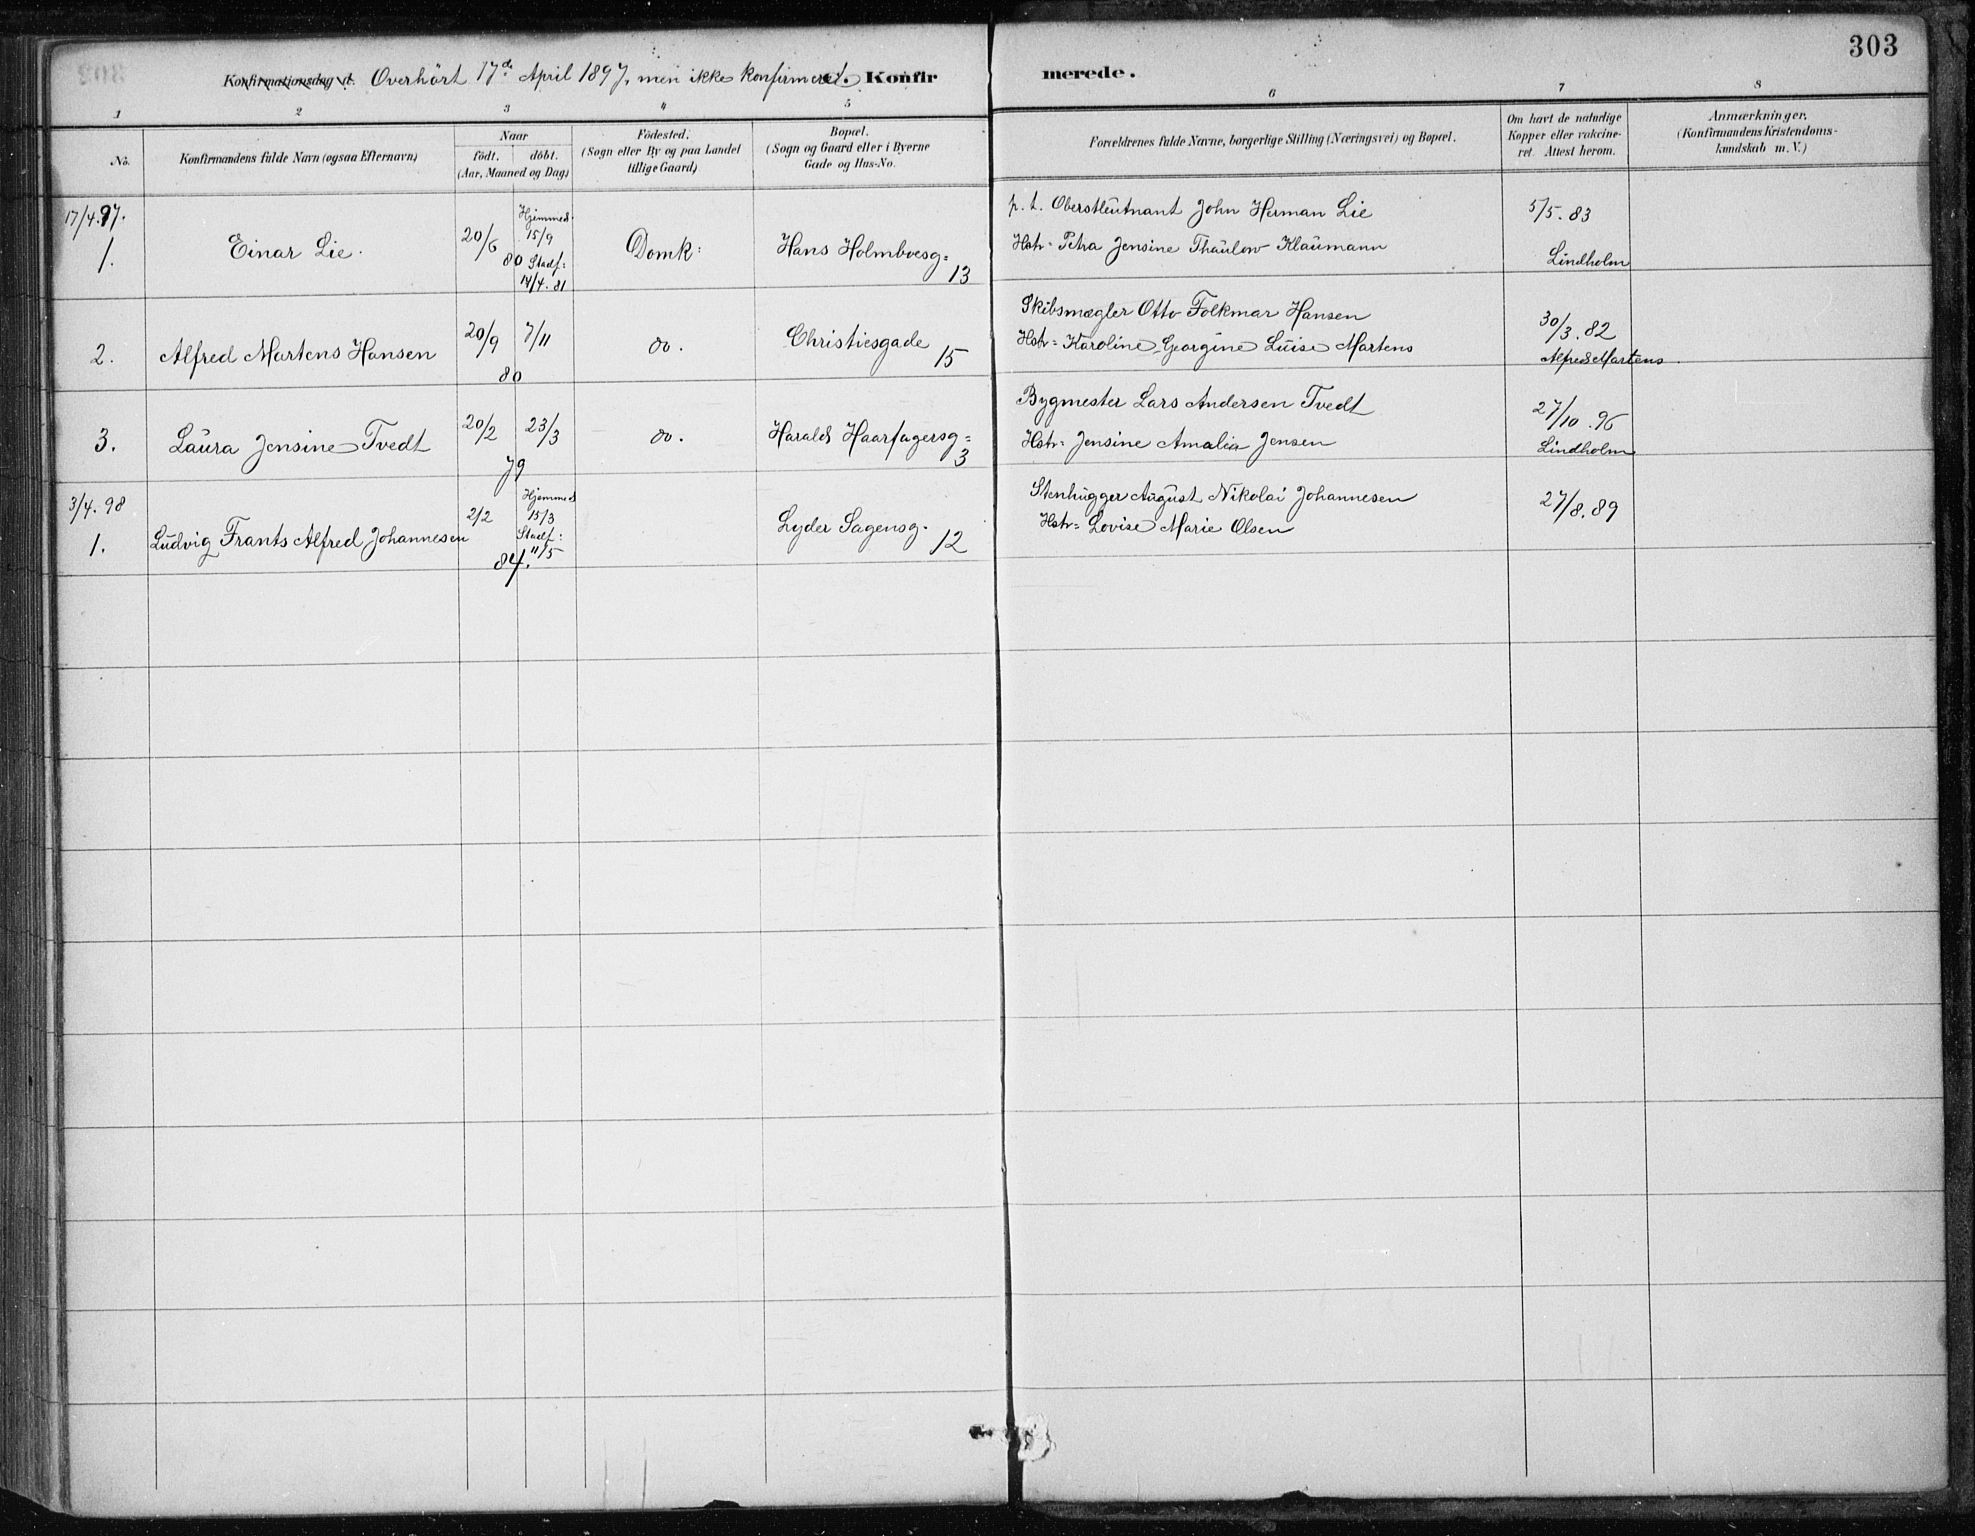 303
Konfirmationsdag d. Overhört 17de April 1897, men ikke konfirmeret. C. Konfirmerede.
1 2 3 4 5 6 7 8
No.
Konfirmandens fulde Navn (ogsaa Efternavn)
Naar
født. døbt.
(Aar, Maaned og Dag)
Fødested.
(Sogn eller By og paa Landet
tillige Gaard)
Bopæl.
(Sogn og Gaard eller i Byerne
Gade og Hus-No.
Forældrenes fulde Navne, borgerlige Stilling (Næringsvei) og Bopæl.
Om havt de naturlige
Kopper eller vakcine-
ret. Attest herom.
Anmærkninger.
(Konfirmandens Kristendoms-
kundskab m. V.)
17/4.97.
1.
Einar Lie.
20/6
80
Hjemmed.
15/9
Stadf:
14/4. 81
Domk:
Hans Holmboesg=
13
p. t. Oberstleutnant John Herman Lie
Hstr= Petra Jensine Thaulow Klaumann
5/5. 83
Lindholm
2.
Alfred Martens Hansen
20/9 7/11
80
do.
Christiesgade
15
Skibsmægler Otto Folkmar Hansen
Hstr= Karoline Georgine Luise Martens
30/3. 82
Alfred Martens.
3.
Laura Jensine Tvedt
20/2 23/3
79
do.
Harald Haarfagersg=
3
Bygmester Lars Andersen Tvedt
Hstr= Jensine Amalia Jensen
27/10. 96
Lindholm
3/4. 98
1.
Ludvig Frants Alfred Johannesen
2/2
Hjemmed
15/3
Stadf:
11/5
84.
Lyder Sagensg.
12
Stenhugger August Nikolai Johannesen
Hstr= Lovise Marie Olsen
27/8. 89